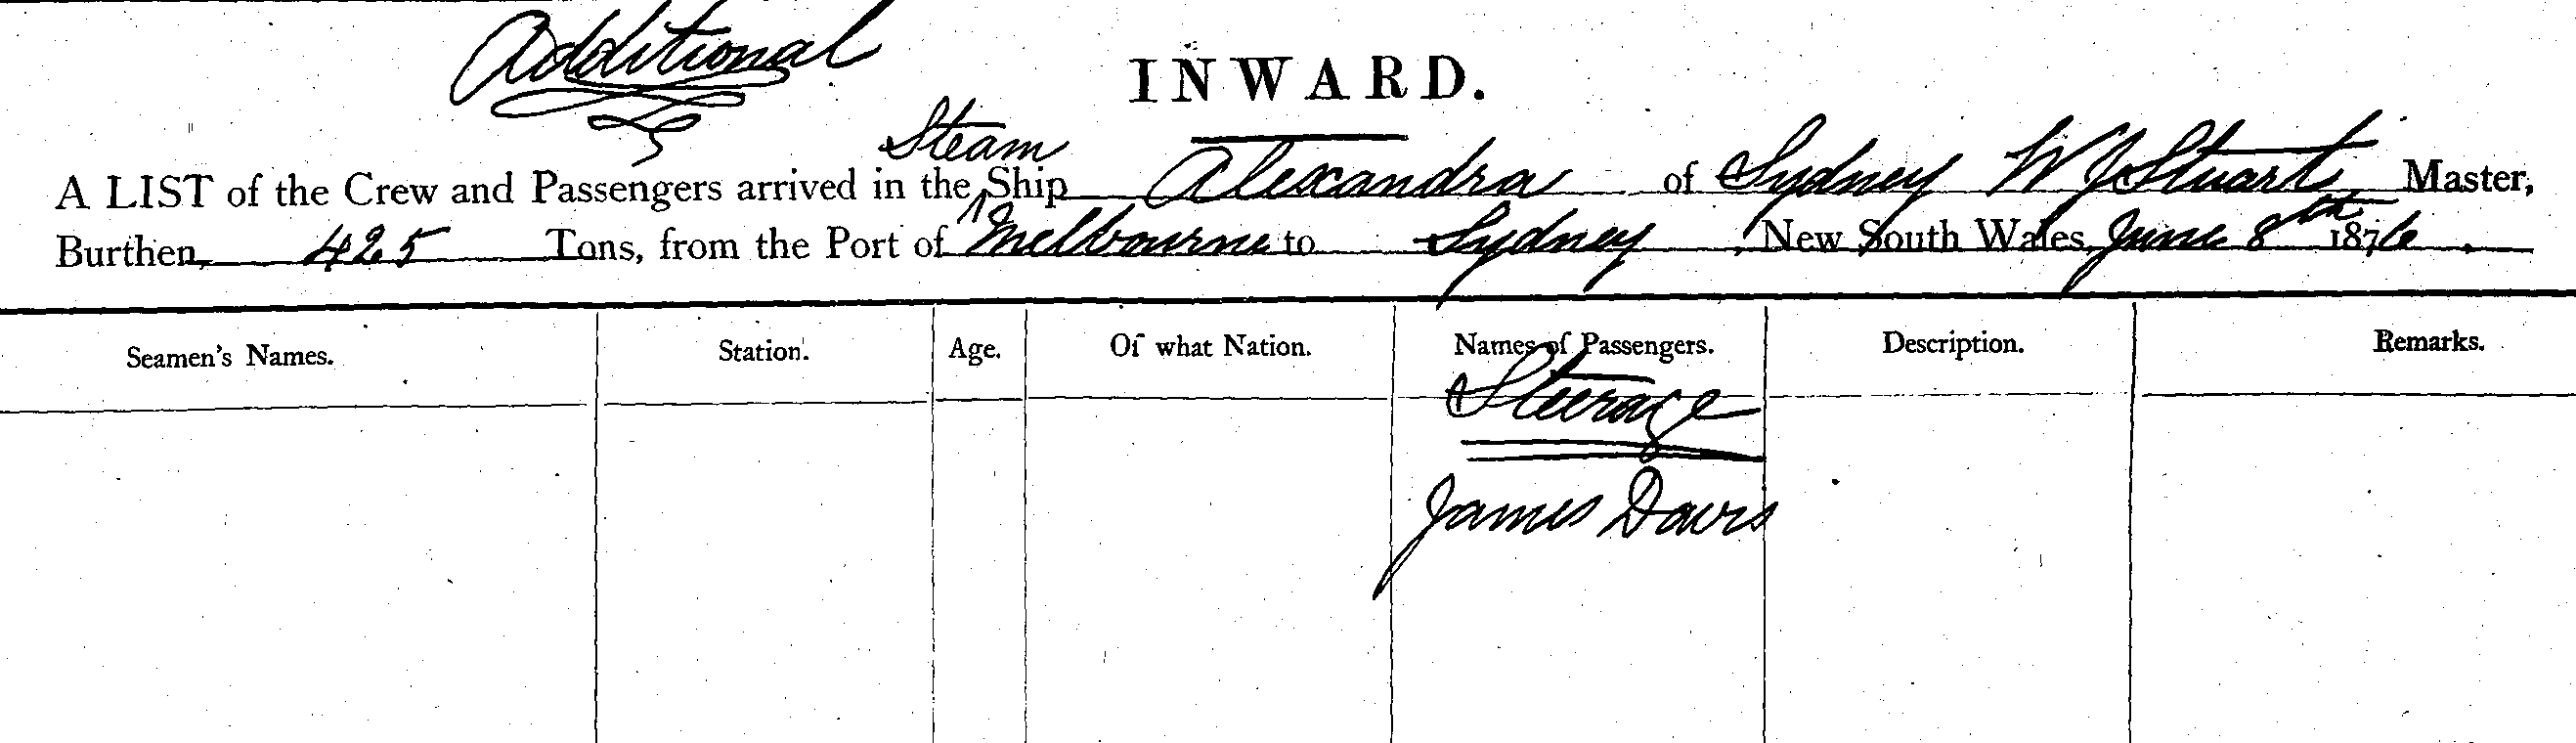 Additional
INWARD.
Steam
A LIST of the Crew and Passengers arrived in the ^ Ship Alexandra of Sydney W J Stuart, Master,
Burthen, 425 Tons, from the Port of Melbourne to Sydney, New South Wales, June 8th 1876.
Seamen's Names. Station. Age. Of what Nation. Names of Passengers. Description. Remarks.
Steerage
James Davis